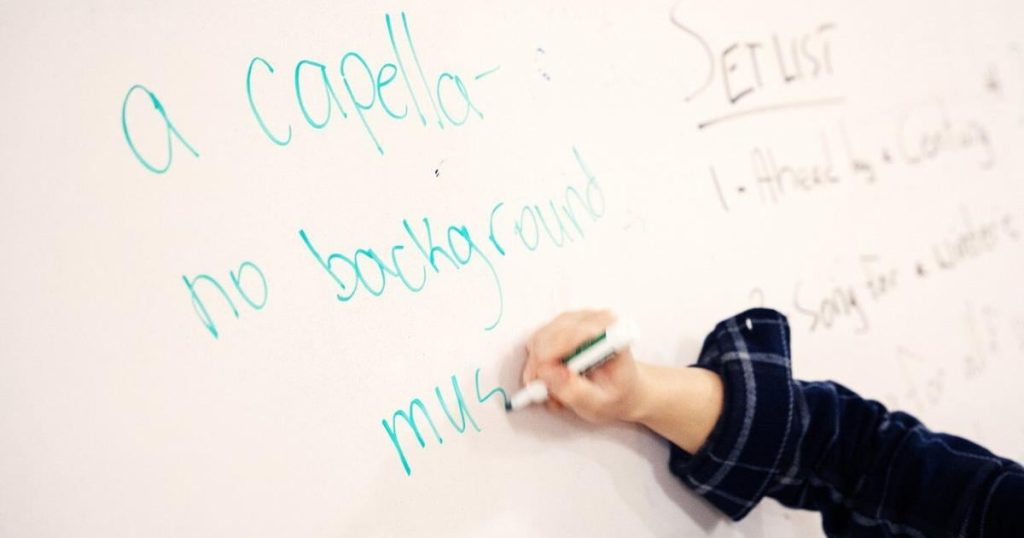 a capella -
no background
mus
SET LIST
1 - Ahead by a Century
Song for a Winter's
for